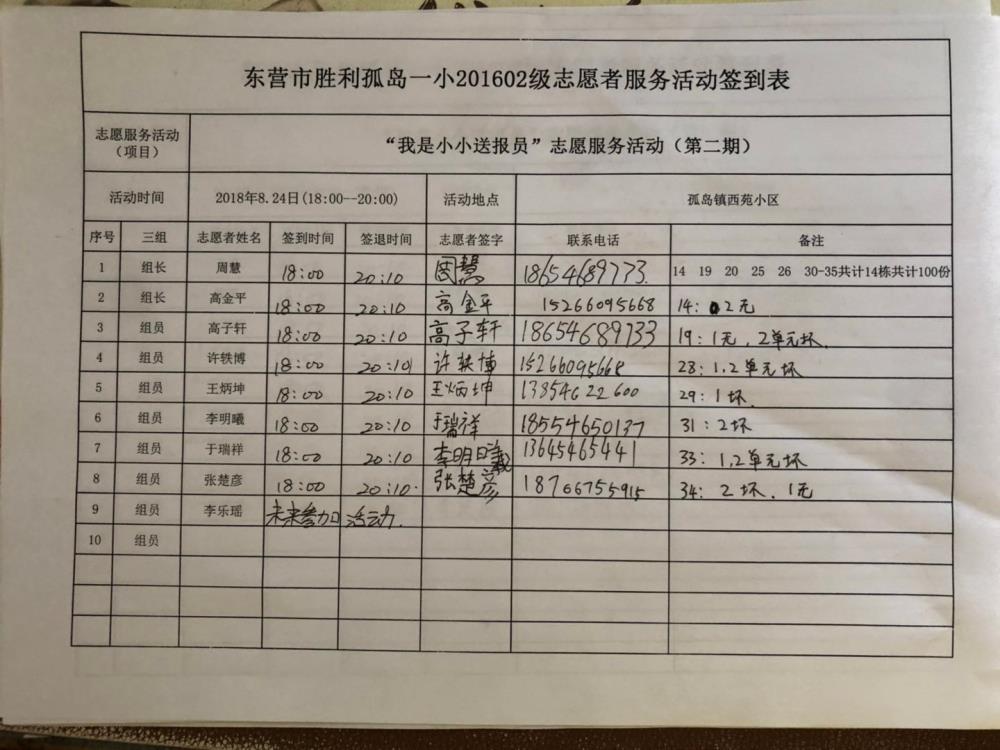 东营市胜利孤岛一小201602级志愿者服务活动签到表
志愿服务活动（项目） “我是小小送报员”志愿服务活动（第二期）
活动时间 2018年8.24日(18:00--20:00) 活动地点 孤岛镇西苑小区
序号 三组 志愿者姓名 签到时间 签退时间 志愿者签字 联系电话 备注
1 组长 周慧 18:00 20:10 周慧 18654689733. 14 19 20 25 26 30-35共计14栋共计100份
2 组长 高金平 18:00 20:10 高金平 15266095668 14: 2无
3 组员 高子轩 18:00 20:10 高子轩 18654689733 19: 1无, 2单元坏.
4 组员 许轶博 18:00 20:10 许轶博 15266095668 28: 1.2单元坏
5 组员 王炳坤 18:00 20:10 王炳坤 13854622600 29: 1坏.
6 组员 李明曦 18:00 20:10 于瑞祥 18554650137 31: 2坏
7 组员 于瑞祥 18:00 20:10 李明曦 13645465441 33: 1.2单元坏
8 组员 张楚彦 18:00 20:10. 张楚彦 18766755915 34: 2坏. 1无
9 组员 李乐瑶 未来参加活动.
10 组员